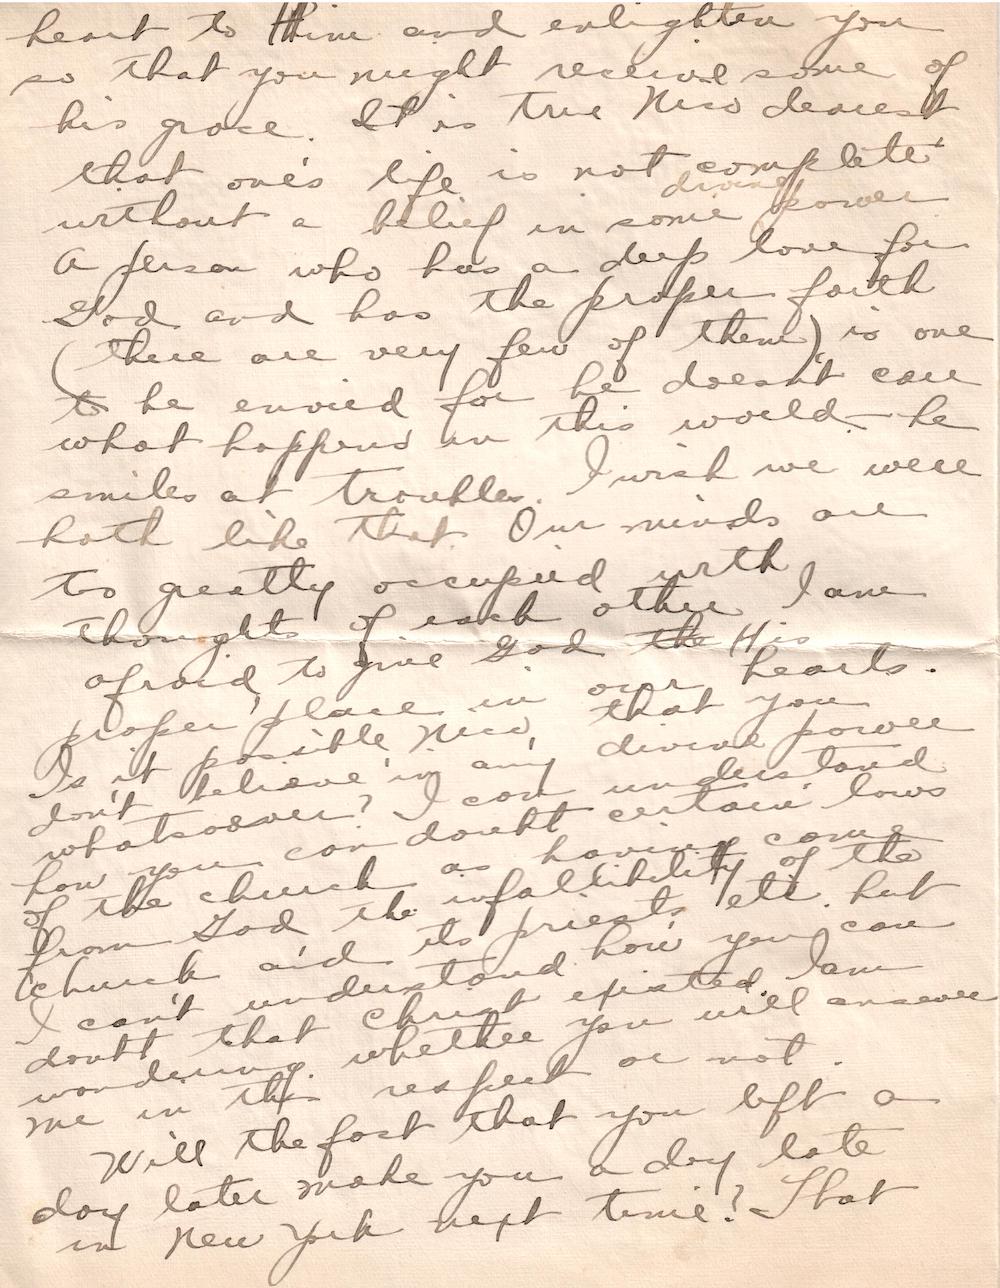 heart to Him and enlighten you
so that you might receive some of
his grace. It is true Nico dearest
that one's life is not complete
without a belief in some divine power
A person who has a deep love for
God and has the proper faith
(there are very few of them) is one
to be envied for he doesn't care
what happens in this world - he
smiles at troubles. I wish we were
both like that. Our minds are
to greatly occupied with
thoughts of each other I am
afraid to give God the His
proper place in our hearts.
Is it possible Nico, that you
don't believe in any divine power
whatsoever? I can understand
how you can doubt certain laws
of the church as having come
from God the infallibility of the
church and its priests etc. but
I can't understand how you can
doubt that Christ existed. I am
wondering whether you will answer
me in this respect or not.
Will the fact that you left a
day later make you a day late
in New York next time? That